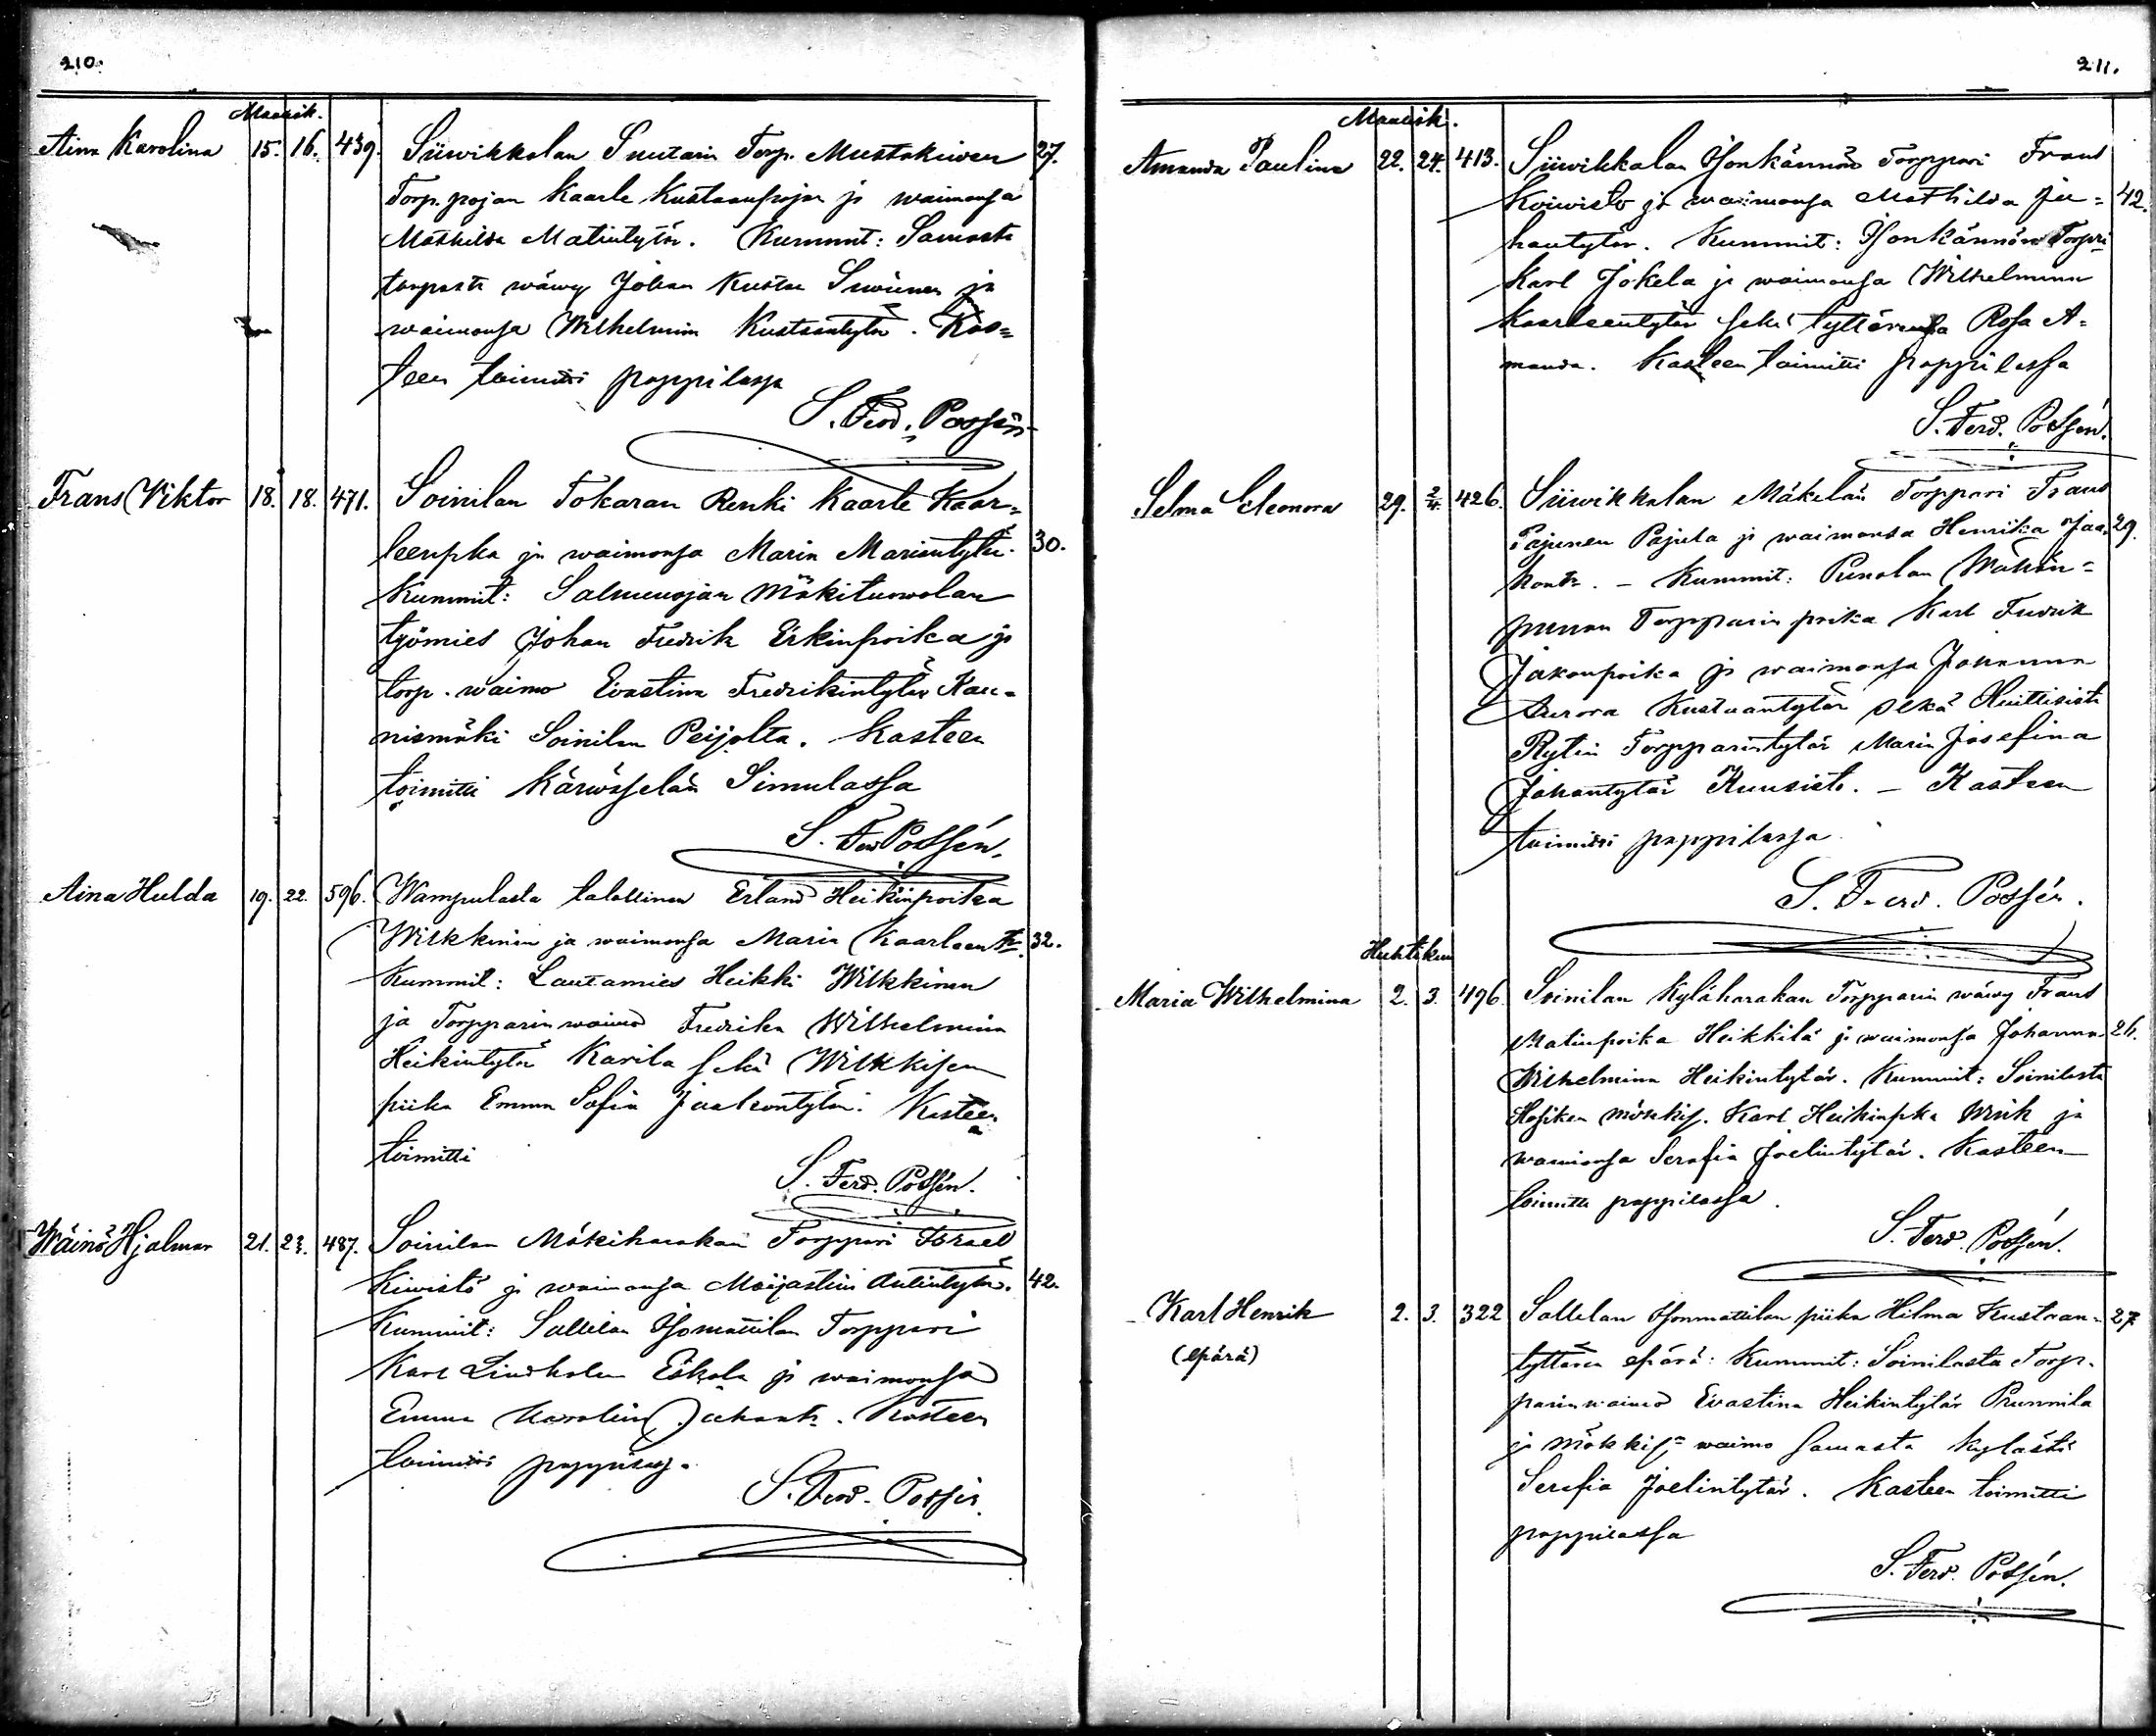 210.
Maalisk.
Aina Karolina 15. 16. 439. Siiwikkalan Suutarin Torp. Mustakiwen 27.
Torp. pojan Kaarle Kustaanpojan ja waimonsa
Mathilda Matintytär. Kummit: Samasta
torpasta wäwy Johan Kustaa ja
waimonsa Wilhelmina Kustaantytär. Kas=
teen toimitti pappilassa
S. Ferd. Possén.
Frans Viktor 18. 18. 471. Soinilan Tokaran Renki Kaarle Kaar=
leenpka ja waimonsa Maria Mariantytär. 30.
Kummit: Salmenojan Mäkituwolan
työmies Johan Fredrik Erkinpoika ja
torp. waimo Evastina Fredrikintytär Kau=
nismäki Soinilan Peijolta. Kasteen
toimitti Kärwäselän Simulassa
S. Ferd Possén.
Aina Hulda 19. 22. 596. Wampulasta talollinen Erland Heikinpoika
Wilkkinen ja waimonsa Maria Kaarleentr. 32.
Kummit: Lautamies Heikki Wilkkinen
ja Torpparin waimo Fredrika Wilhelmina
Heikintytär Karila sekä Wilkkisen
piika Emma Sofia Jaakontytär. Kasteen
toimitti
S. Ferd. Possén.
Wäinö Hjalmar 21. 23. 487. Soinilan Mäkiharakan Torppari Israel
Kiwistö ja waimonsa Maijastiina Antintytär. 42.
Kummit: Sallilan Isomattilan Torppari
Karl Lindholm Eskola ja waimonsa
Emma Karolina Juhantr. Kasteen
toimitti pappilassa.
S. Ferd. Possén.
211.
Maalisk.
Amanda Paulina 22. 24. 413. Siiwikkalan Isonkännön Torppari Frans
Koiwisto ja waimonsa Mathilda Ju= 42.
hantytär. Kummit: Isonkännön Torpri
Karl Jokela ja waimonsa Wilhelmina
Kaarleentytär sekä tyttärensä Rosa A=
manda. Kasteen toimitti pappilassa
S. Ferd. Possén.
Selma Eleonora 29. 2/4. 426. Siiwikkalan Mäkelän Torppari Frans
Pajunen Pajula ja waimonsa Henrika Jaa= 29.
kontr. – Kummit: Punolan Wähän=
punon Torpparin poika Karl Fredrik
Jakonpoika ja waimonsa Johanna
Aurora Kustaantytär sekä Huittisista
Rytin Torpparintytär Maria Josefina
Johantytär Kuusisto. – Kasteen
toimitti pappilassa.
S. Ferd. Possén.
Huhtikuu
Maria Wilhelmina 2. 3. 496. Soinilan Kyläharakan Torpparin wäwy Frans
Matinpoika Heikkilä ja waimonsa Johanna 26.
Wilhelmina Heikintytär. Kummit: Soinilasta
mökkis. Karl Heikinpka ja
waimonsa Serafia Joelintytär. Kasteen
toimitti pappilassa.
S. Ferd. Possén.
Karl Henrik 2. 3. 322 Sallilan Isonmattilan piika Hilma Kustaan= 27
(epärä) tyttären epärä: Kummit: Soinilasta Torp-
parinwaimo Evastina Heikintytär Prunnila
ja Mökkis= waimo samasta kylästä
Serafia Joelintytär. Kasteen toimitti
pappilassa
S. Ferd. Possén.